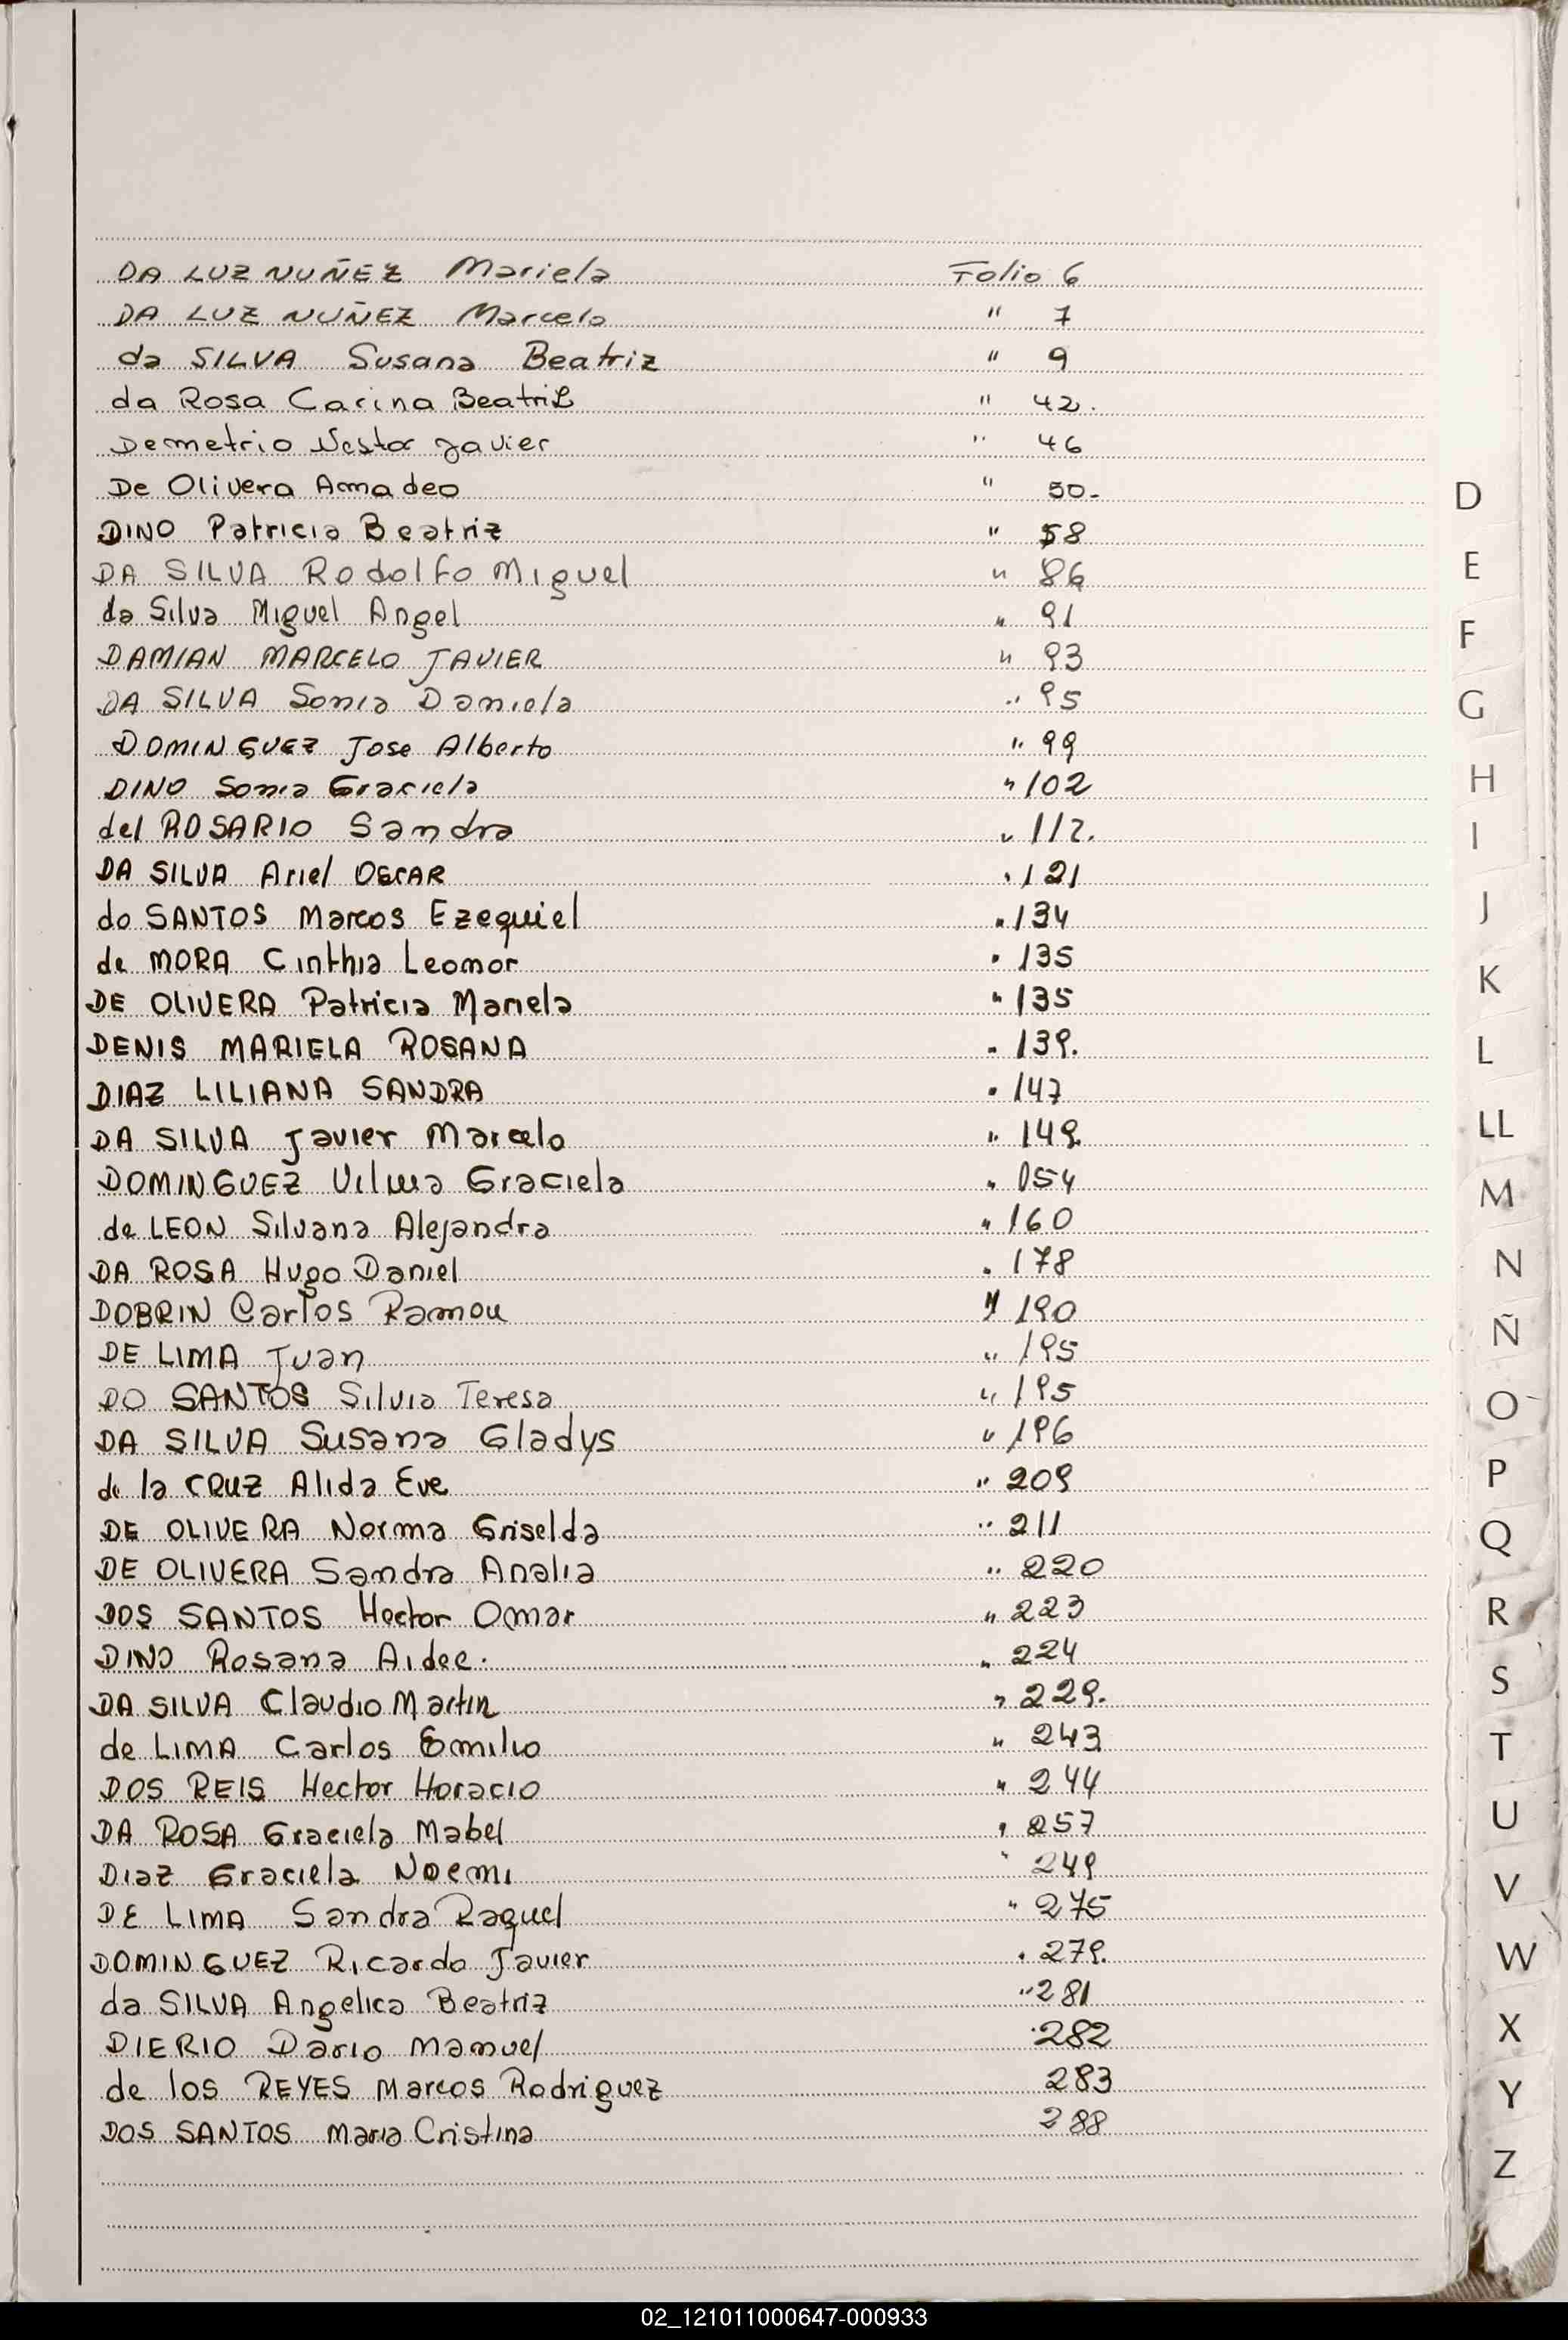 DA LUZ NUÑEZ Mariela Folio 6
DA LUZ NUÑEZ Marcelo " 7
da SILVA Susana Beatriz " 9
da Rosa Carina Beatriz " 42.
Demetrio Nestor Javier " 46
De Olivera Amadeo " 50-
DINO Patricia Beatriz " 58
DA SILVA Rodolfo Miguel " 86
da Silva Miguel Angel " 91
DAMIAN MARCELO JAVIER " 93
DA SILVA Sonia Daniela " 95
DOMINGUEZ Jose Alberto " 99
DINO Sonia Graciela " 102
del ROSARIO Sandra " 112.
DA SILVA Ariel OSCAR " 121
do SANTOS Marcos Ezequiel " 134
de MORA Cinthia Leomor " 135
DE OLIVERA Patricia Mariela " 135
DENIS MARIELA ROSANA " 139.
DIAZ LILIANA SANDRA " 147
DA SILVA Javier Marcelo " 149.
DOMINGUEZ Vilma Graciela " 154
de LEON Silvana Alejandra " 160
DA ROSA Hugo Daniel " 178
DOBRIN Carlos Ramon " 190
DE LIMA Juan " 195
DO SANTOS Silvia Teresa " 195
DA SILVA Susana Gladys " 196
de la CRUZ Alida Eve " 209
DE OLIVERA Norma Griselda " 211
DE OLIVERA Sandra Analia " 220
DOS SANTOS Hector Omar " 223
DINO Rosana Aidee. " 224
DA SILVA Claudio Martin " 229.
de LIMA Carlos Emilio " 243
DOS REIS Hector Horacio " 244
DA ROSA Graciela Mabel " 257
Diaz Graciela Noemi " 249
DE LIMA Sandra Raquel " 275
DOMINGUEZ Ricardo Javier " 279.
da SILVA Angelica Beatriz " 281
DIERIO Dario Manuel " 282
de los REYES Marcos Rodriguez 283
DOS SANTOS Maria Cristina 288
D
E
F
G
H
I
J
K
L
LL
M
N
Ñ
O
P
Q
R
S
T
U
V
W
X
Y
Z
02_121011000647-000933